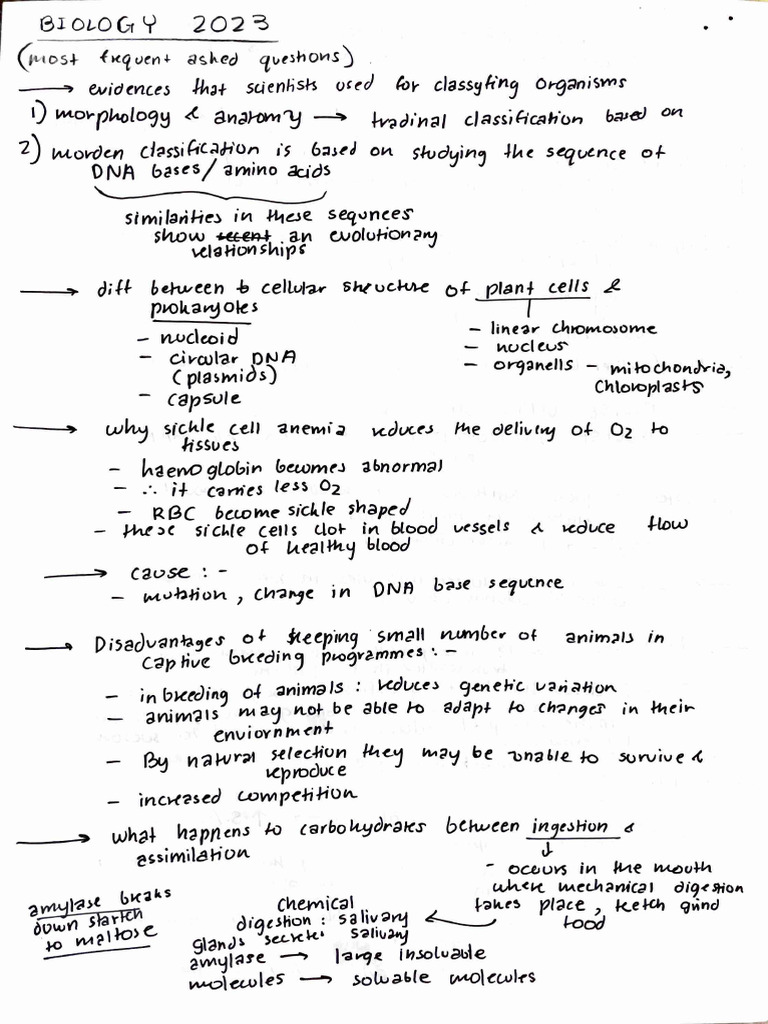 BIOLOGY 2023
(most frequent asked questions)
→ evidences that scientists used for classyfing organisms
1) morphology & anatomy → tradinal classification based on
2) morden classification is based on studying the sequence of
DNA bases/amino acids
similarities in these sequnces
show recent an evolutionary
relationships
→ diff between cellular structure of plant cells &
prokaryotes
- nucleoid
- circular DNA
(plasmids)
- capsule
- linear chromosome
- nucleus
- organells - mitochondria,
chloroplasts
→ why sickle cell anemia reduces the delivery of O2 to
tissues
- haemoglobin becomes abnormal
- ∴ it carries less O2
- RBC become sickle shaped
- these sickle cells clot in blood vessels & reduce flow
of healthy blood
→ cause :-
- mutation, change in DNA base sequence
→ Disadvantages of keeping small number of animals in
captive breeding programmes :-
- inbreeding of animals : reduces genetic variation
- animals may not be able to adapt to changes in their
enviornment
- By natural selection they may be unable to survive &
reproduce
- increased competition
→ what happens to carbohydrates between ingestion &
assimilation
- occurs in the mouth
where mechanical digestion
takes place, teeth grind
food
chemical
digestion : salivary
glands secretes salivary
amylase → large insoluable
molecules → soluable molecules
amylase breaks
down starch
to maltose